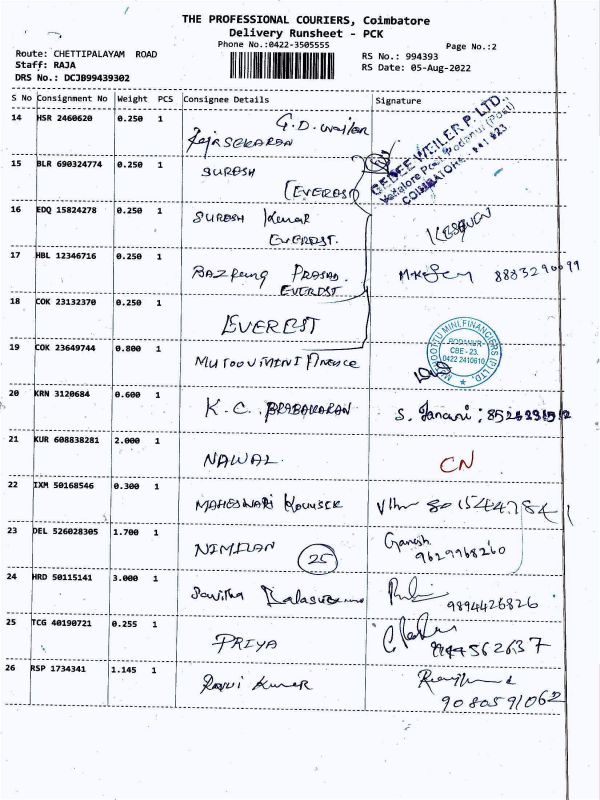 THE PROFESSIONAL COURIERS, Coimbatore
Delivery Runsheet - PCK
Phone No.:0422-3505555
Page No.:2
Route: CHETTIPALAYAM ROAD
RS No.: 994393
Staff: RAJA
RS Date: 05-Aug-2022
DRS No.: DCJB99439302
S No Consignment No Weight PCS Consignee Details Signature
14 HSR 2460620 0.250 1 G.D. Weiler
RajaSEKARAN
GEDEE WEILER P. LTD.,
COIMBATORE
15 BLR 690324774 0.250 1 SURESH
(EVEREST)
16 EDQ 15824278 0.250 1 SURESH Kumar
EVEREST.
17 HBL 12346716 0.250 1 PRASAD.
EVEREST
8883290099
18 COK 23132370 0.250 1 EVEREST
19 COK 23649744 0.800 1 MUTOOT MINI Finance
MUTHOOTTU MINI FINANCIERS (P) LTD.
PODANUR
CBE - 23.
0422 2410610
20 KRN 3120684 0.600 1 K.C. PRABAKARAN S. Janani ;
21 KUR 608838281 2.000 1 NAWAL. CN
22 IXM 50168546 0.300 1 MAHESWARI
23 DEL 526028305 1.700 1 NIMILAN 25 Ganesh
9629968260
24 HRD 50115141 3.000 1 Savitha
9894426826
25 TCG 40190721 0.255 1 PRIYA
26 RSP 1734341 1.145 1 Ravi Kumar
9080591062